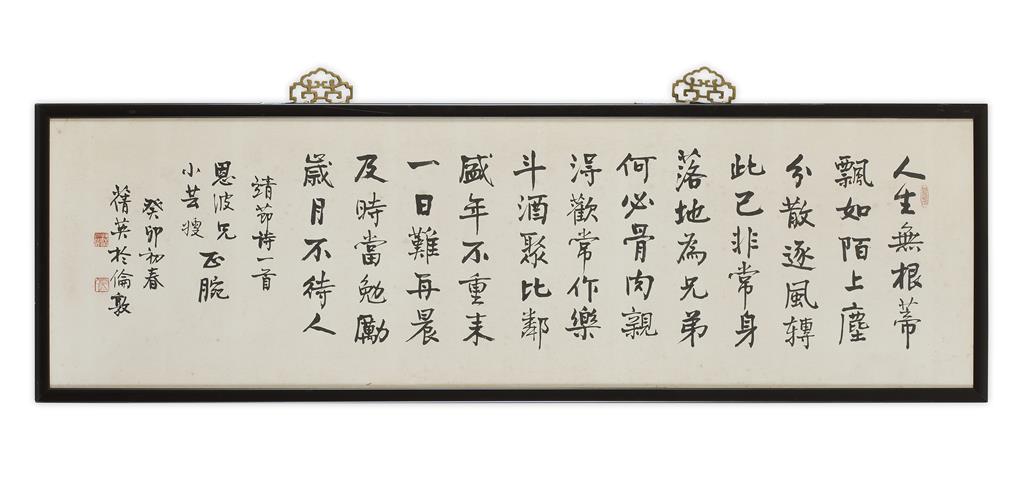 人生無根蒂
飄如陌上塵
分散逐風轉
此已非常身
落地為兄弟
何必骨肉親
得歡常作樂
斗酒聚比鄰
盛年不重来
一日難再晨
及時當勉勵
歲月不待人
靖節詩一首
恩波兄 正腕
小芸嫂
癸卯初春
蒨英於倫敦